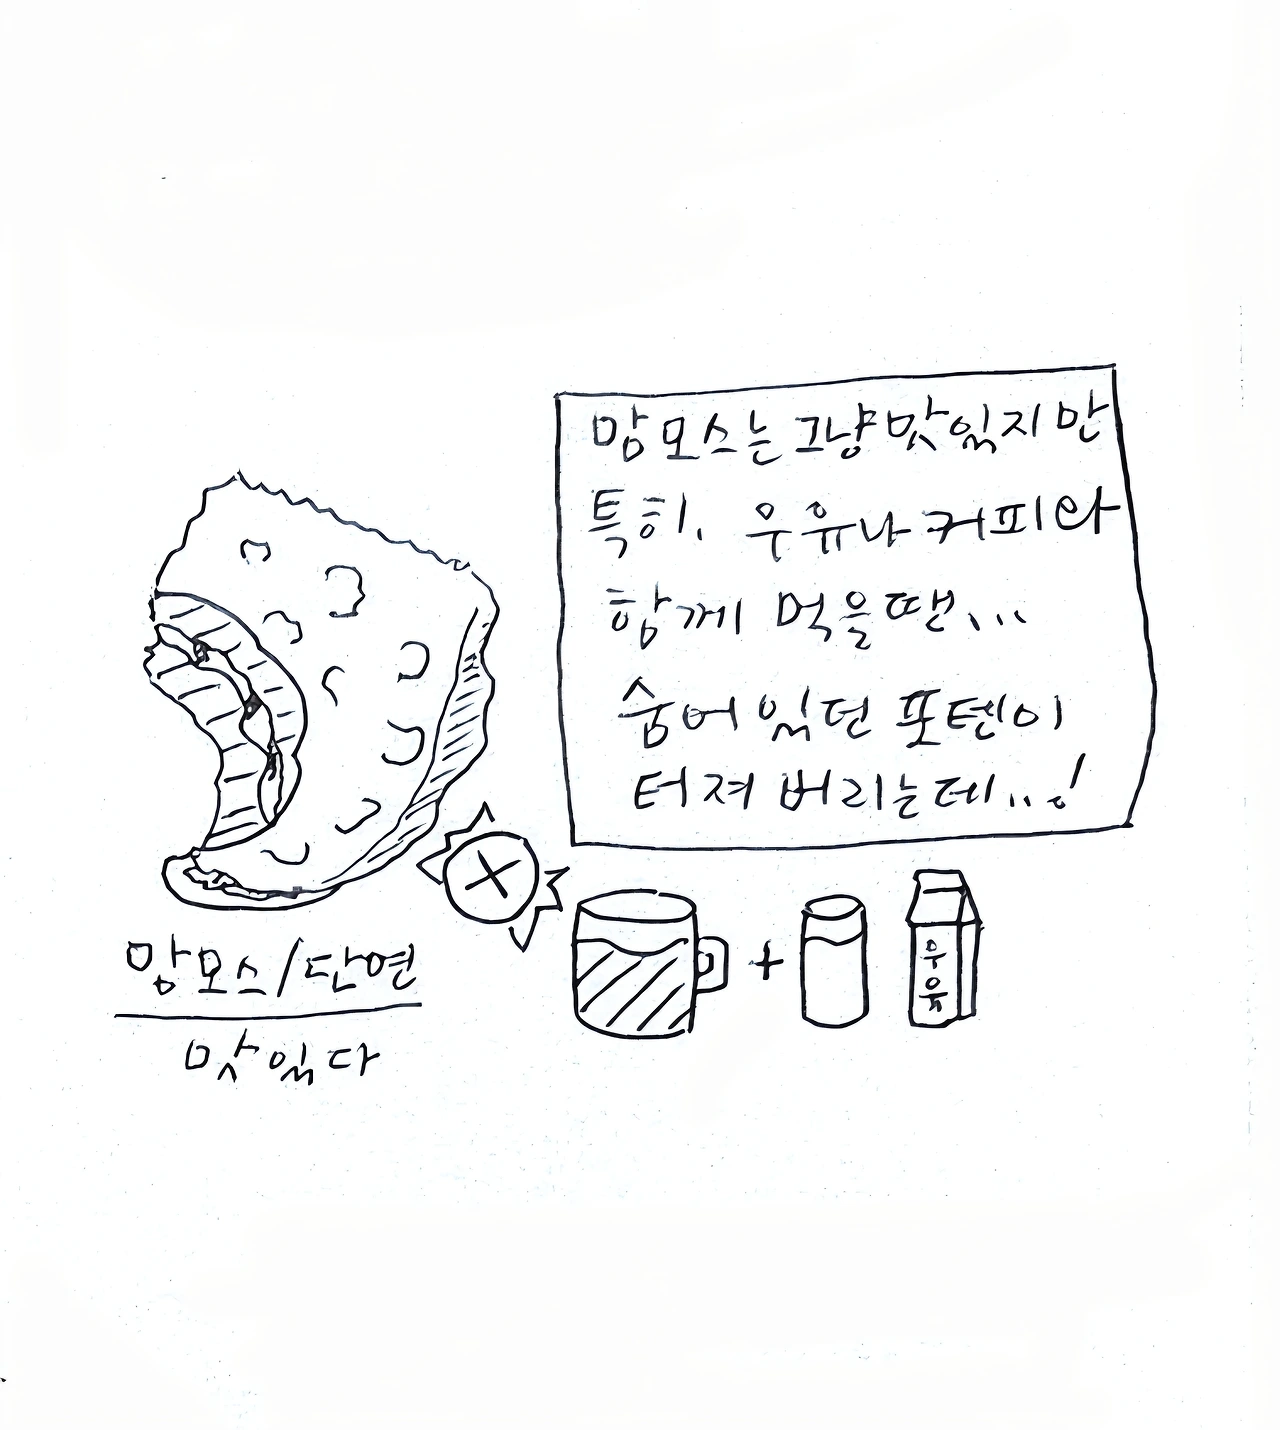 맘모스는 그냥 맛있지만
특히, 우유나 커피와
함께 먹을땐...
숨어있던 포텐이
터져버리는데...!
맘모스/단면
맛있다
+
우유